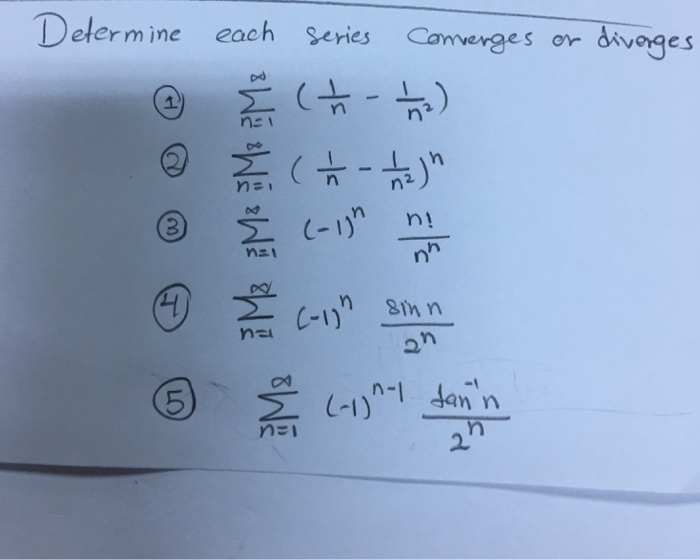 Determine each series Converges or diverges
① ∞ Σ n=1 (1/n - 1/n²)
② ∞ Σ n=1 (1/n - 1/n²)ⁿ
③ ∞ Σ n=1 (-1)ⁿ n!/nⁿ
④ ∞ Σ n=1 (-1)ⁿ sin n/2ⁿ
⑤ ∞ Σ n=1 (-1)ⁿ⁻¹ tan⁻¹n/2ⁿ